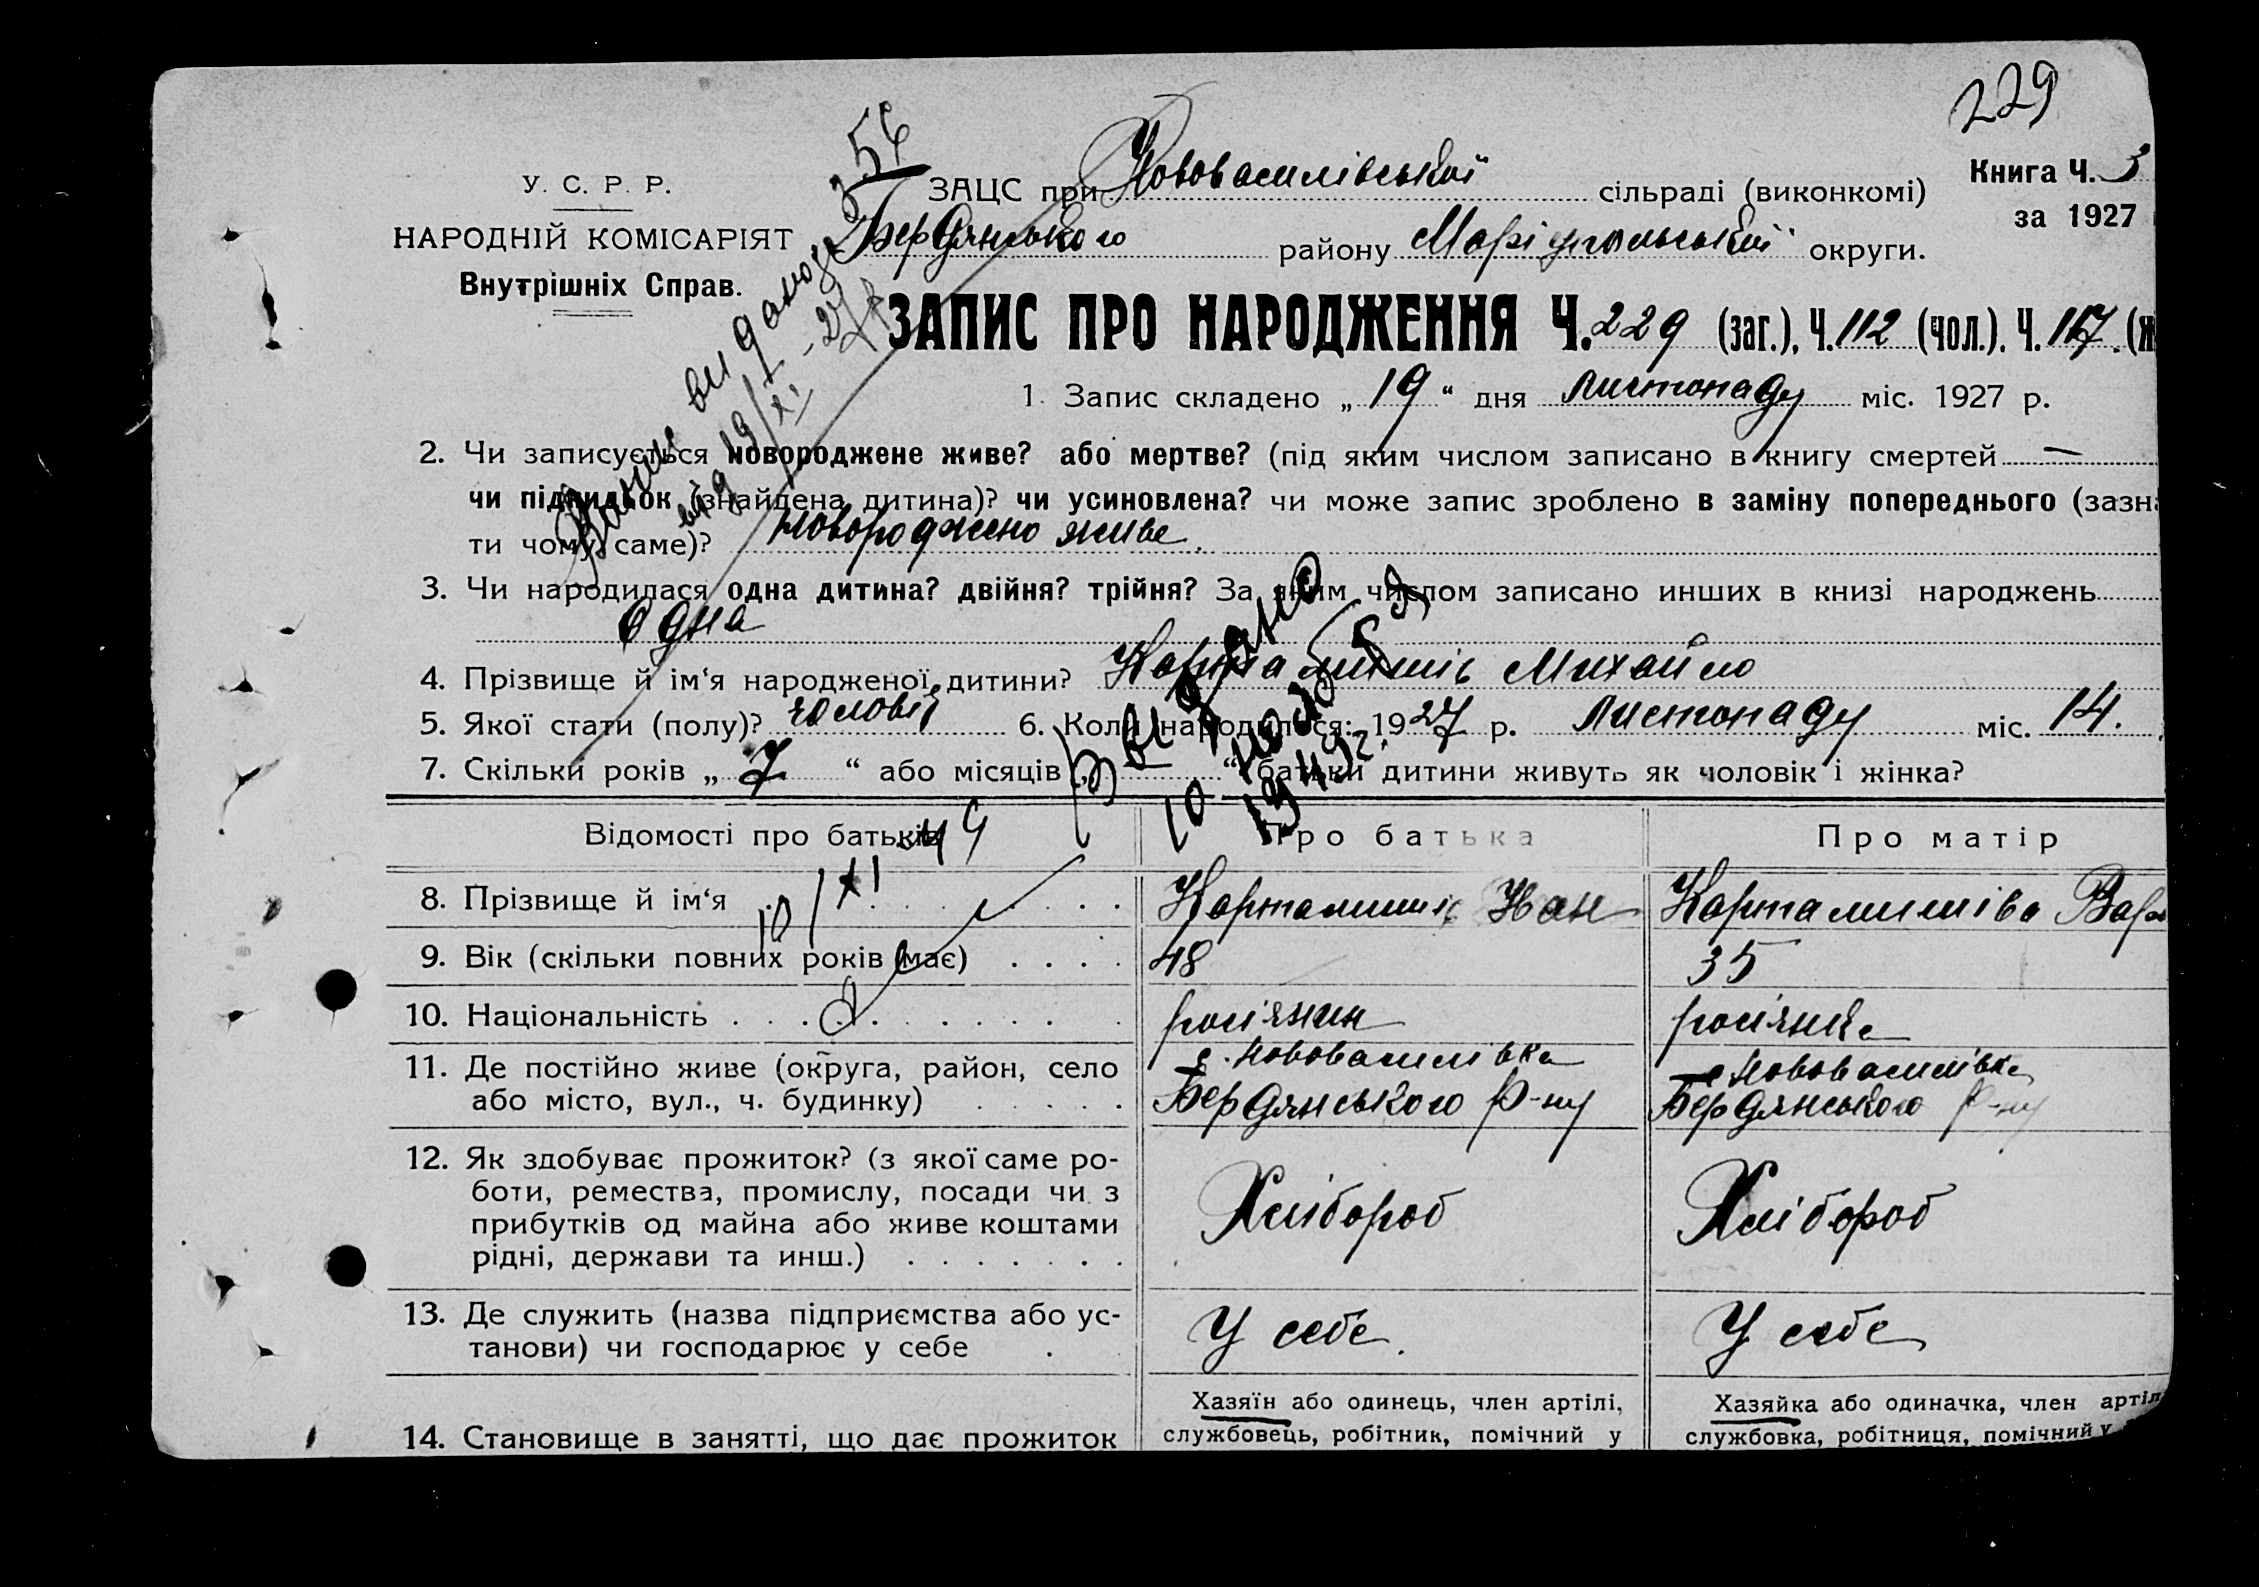 229
У. С. Р. Р.
НАРОДНІЙ КОМІСАРІЯТ
Внутрішніх Справ.
ЗАЦС при Нововасилівській сільраді (виконкомі)
Бердянського району Маріупольської округи.
Книга Ч. 3
за 1927
ЗАПИС ПРО НАРОДЖЕННЯ Ч. 229 (заг.), Ч. 112 (чол.). Ч. 117. (ж
1. Запис складено „ 19 “ дня листопаду міс. 1927 р.
2. Чи записується новороджене живе? або мертве? (під яким числом записано в книгу смертей —
чи підкидьок (знайдена дитина)? чи усиновлена? чи може запис зроблено в заміну попереднього (зазна
ти чому саме)? новороджено живе.
3. Чи народилася одна дитина? двійня? трійня? За яким числом записано инших в книзі народжень
одна
4. Прізвище й ім‘я народженої дитини? Карталишів Михайло
5. Якої стати (полу)? чоловіч 6. Коли народилося: 1927 р. листопаду міс. 14.
7. Скільки років „ 7 “ або місяців „ “ батьки дитини живуть як чоловік і жінка?
Видано
1949г.
10/XI 49
Відомості про батьків
Про батька
Про матір
8. Прізвище й ім‘я
Карталишів Иван
Карталишіва Вар
9. Вік (скільки повних років має)
48
35
10. Національність
росіянин
росіянка
11. Де постійно живе (округа, район, село
або місто, вул., ч. будинку)
с. Нововасилівка
Бердянського р-ну
с Нововасилівка
Бердянського р-ну
12. Як здобуває прожиток? (з якої саме ро-
боти, ремества, промислу, посади чи з
прибутків од майна або живе коштами
рідні, держави та инш.)
Хлібороб
Хлібороб
13. Де служить (назва підприємства або ус-
танови) чи господарює у себе
У себе.
У себе
14. Становище в занятті, що дає прожиток
Хазяїн або одинець, член артілі,
службовець, робітник, помічний у
Хазяйка або одиначка, член артіл
службовка, робітниця, помічний у